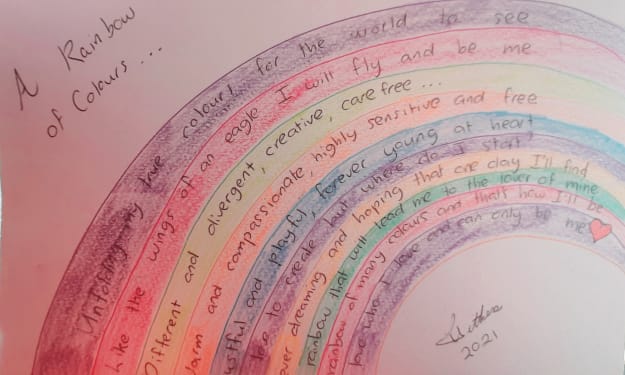 A Rainbow
of Colours ...
Unfolding my true colours for the world to see
Like the wings of an eagle I will fly and be me
Different and divergent, creative, care free ...
Warm and compassionate, highly sensitive and free
and playful, forever young at heart
to create but where do I start
over dreaming and hoping that one day I'll find
rainbow that will lead me to the lover of mine
rainbow of many colours and that's how I'll be
love who I love and can only be me
2021